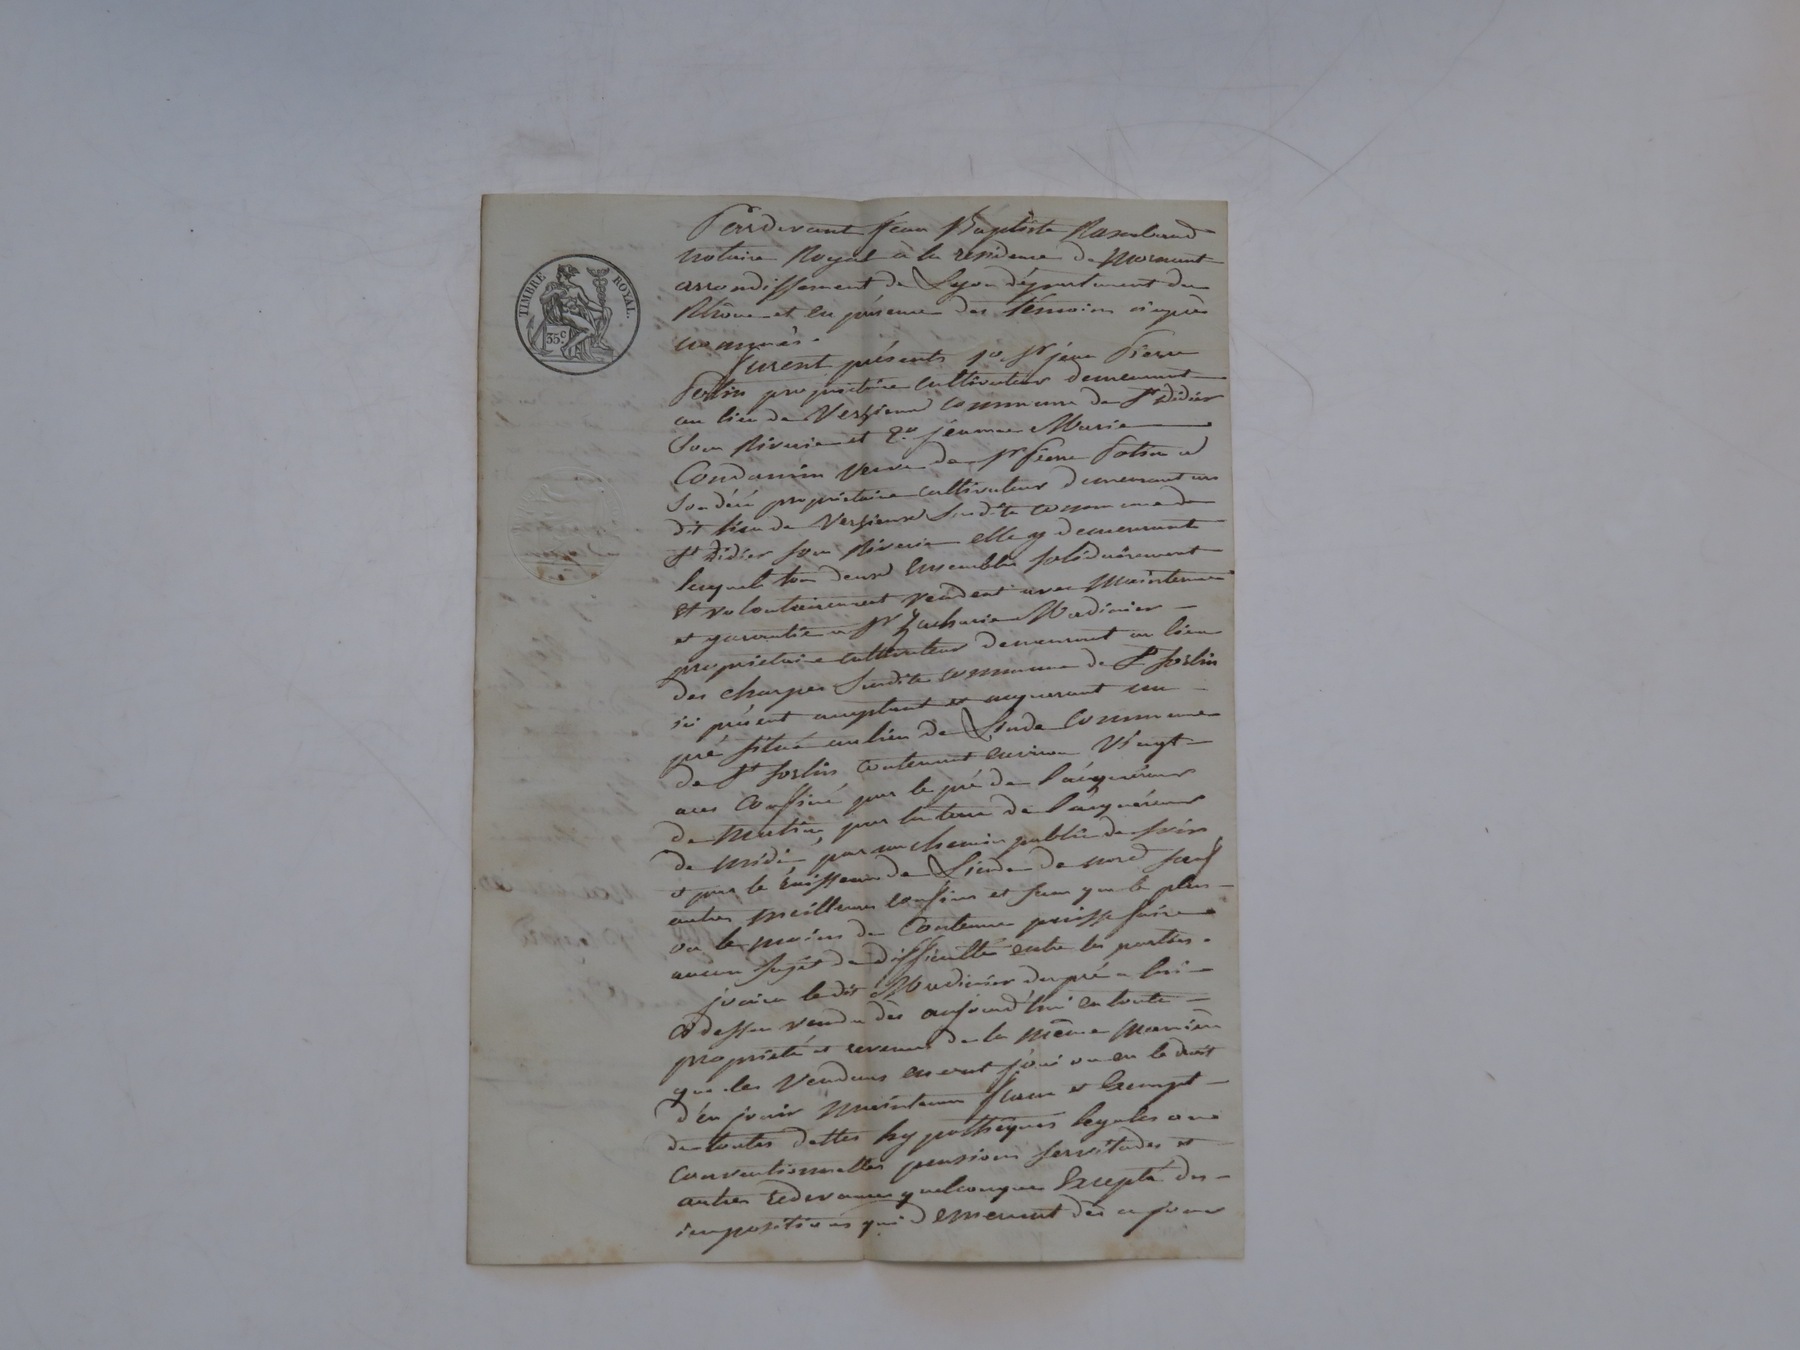 TIMBRE ROYAL.
35 c.
Pardevant Jean Baptiste Rambaud
notaire Royal à la residence de Mornant
arrondissement de Lyon département du
Rhône et en présence des témoins ci après
nommés.
furent présents 1o Sr jean Pierre
proprietaire cultivateur demeurant
au lieu de Verzieux commune de St Didier
sous Riverie et 2o jeanne Marie
Condamin veuve de Sr Pierre
proprietaire cultivateur demeurant au
dit lieu de Verzieux Susdite commune de
St Didier sous Riverie elle y demeurant
lesquels tous deux Ensemble solidairement
et volontairement vendent avec Maintenue
et garantie a Sr Zacharie Madinier
propriétaire cultivateur demeurant au lieu
des charpes Susdite commune de St Sorlin
ici présent acceptant et acquerant un
pré situé au lieu de commune
de St Sorlin contenant environ Vingt
ares confiné par le pré de l'acquéreur
de Matin, par la terre de l'acquéreur
de midi, par un chemin public de soir
et par le de de nord sauf
autres meilleurs confins et sans que le plus
ou le moins de Contenue puisse faire
aucun sujet de difficulté entre les parties.
jouira le dit Madinier du pré a lui
Cidessus vendu dès aujourd'hui en toute
propriété et revenus de la même Manière
que les Vendeurs en ont joui ou eu le droit
d'en jouir Maintenu franc et Exempt
de toutes dettes hypothèques legales ou
conventionnelles pensions servitudes et
autres redevances quelconques Excepté des
impositions qui demeurent dès ce jour